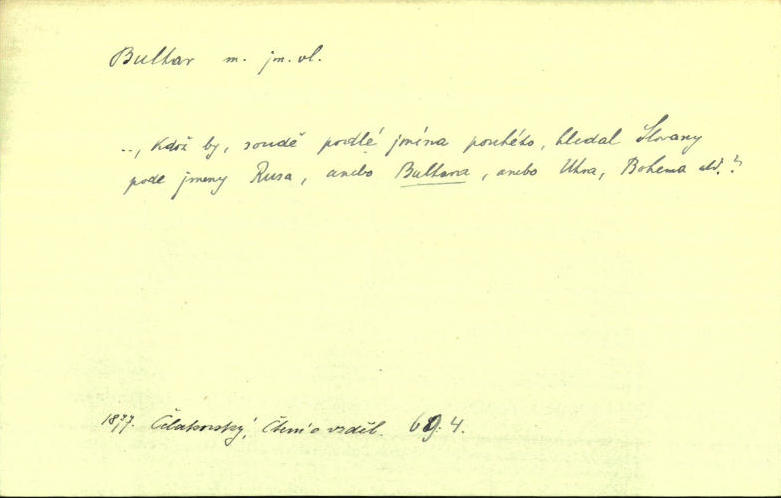 Bulhar m. jm. vl.
.., Kdož by, soudě podlé jména pouhého, hledal Slovany
pode jmeny Rusa, anebo Bulhara, anebo Uhra, Bohema atd.?
1877. Čelakovský, Čtení o vzděl. 69.4.